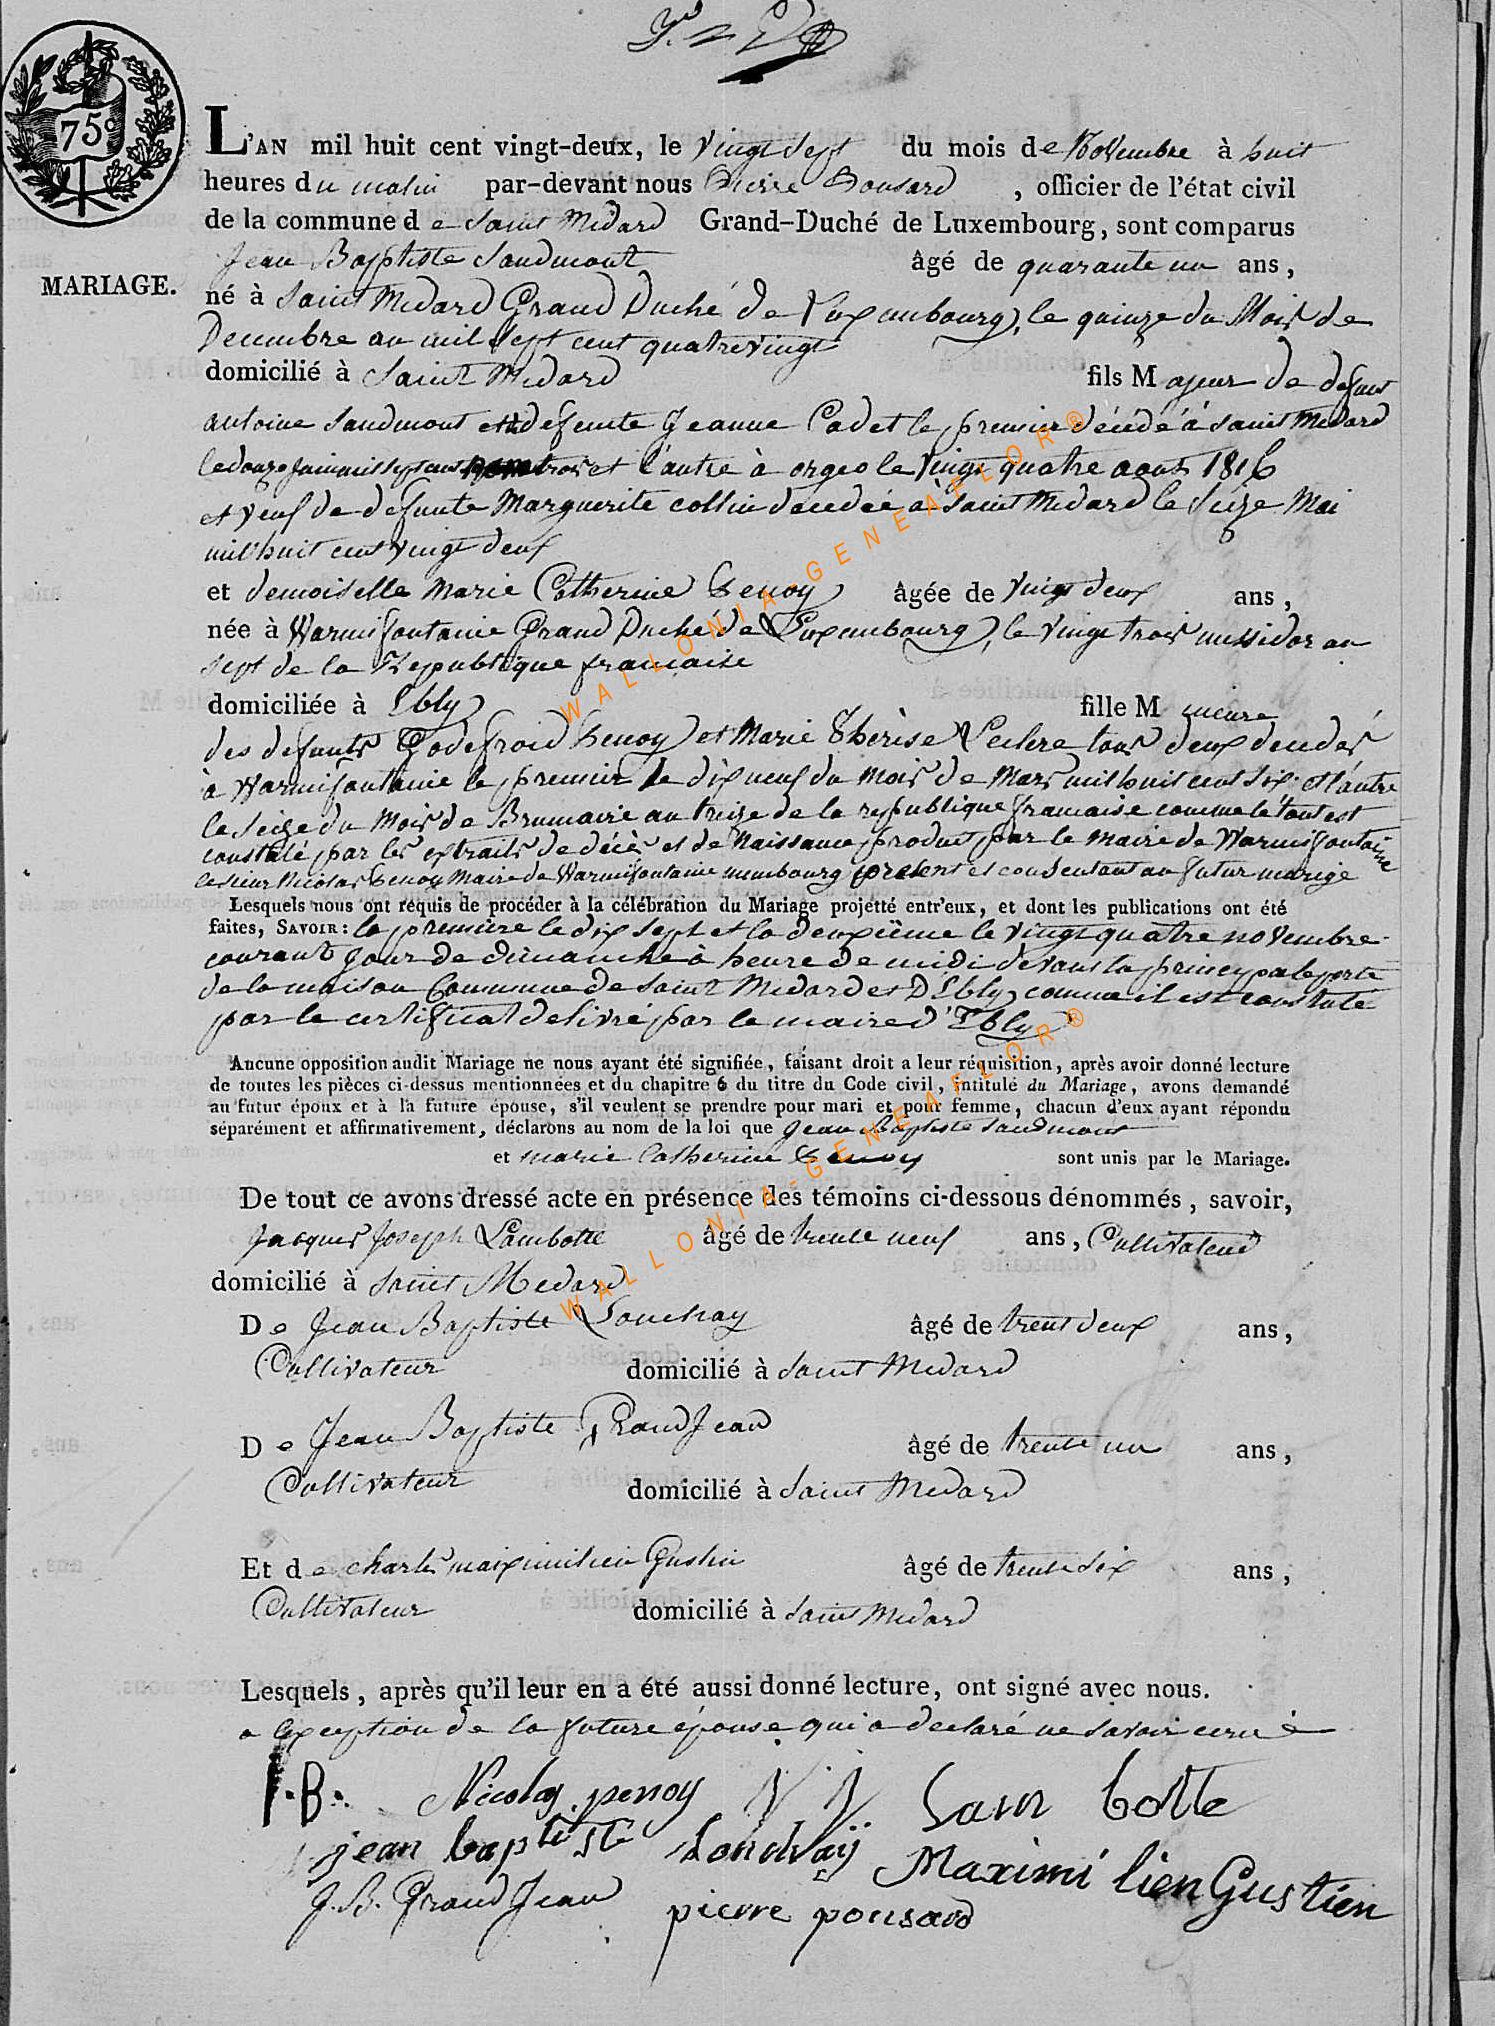 75c
L'AN mil huit cent vingt-deux, le vingt sept du mois de Novembre à huit
heures du matin par-devant nous Pierre Ponsard , officier de l'état civil
de la commune de Saint Médard Grand-Duché de Luxembourg, sont comparus
Jean Baptiste Saudmont âgé de quarante un ans,
MARIAGE.
né à Saint Medard Grand Duché de Luxembourg, le quinze du Mois de
Decembre an mil Sept cent quatrevingt
domicilié à Saint Medard fils Majeur de defunt
antoine Saudmont et defunte Jeanne Cadet le premier décédé à Saint Medard
et l'autre à orgeo le vingt quatre aout 1816
et veuf de defunte Marguerite collin decedée à Saint Medard le Seize Mai
mil huit cent vingt deux
et demoiselle Marie Catherine Penoy âgée de vingt deux ans,
née à Warmifontaine Grand Duché de Luxembourg, le vingt trois messidor an
sept de la Republique francaise
domiciliée à Ebly fille Mineure
des defunts Godefroid Penoy et Marie Thérèse Leclere tous deux decedés
à Warmifontaine le premier le dix neuf du mois de Mars mil huit cent six et l'autre
le Seize du Mois de Brumaire an treize de la republique francaise comme le tout est
constaté par les extraits de décès et de Naissance produit par le maire de Warmifontaine
le sieur Nicolas Penoy Maire de Warmifontaine present et consentant au futur marige
Lesquels nous ont requis de procéder à la célébration du Mariage projetté entr'eux, et dont les publications ont été
faites, SAVOIR: la premiere le dix sept et la deuxiëme le vingt quatre novembre
courant Jour de dimanche à heure de midi devant la principale porte
de la maison Commune de Saint Medard et D'Ebly comme il est constaté
par le certificat delivré par le maire d'Ebly
Aucune opposition audit Mariage ne nous ayant été signifiée, faisant droit a leur réquisition, après avoir donné lecture
de toutes les pièces ci-dessus mentionnées et du chapitre 6 du titre du Code civil, intitulé du Mariage, avons demandé
au futur époux et à la future épouse, s'il veulent se prendre pour mari et pour femme, chacun d'eux ayant répondu
séparément et affirmativement, déclarons au nom de la loi que Jean Baptiste Saudmont
et marie Catherine Penoy sont unis par le Mariage.
De tout ce avons dressé acte en présence des témoins ci-dessous dénommés, savoir,
Jacques Joseph Lambotte âgé de trente neuf ans, Cultivateur
domicilié à Saint Medard
De Jean Baptiste Louchay âgé de trent deux ans,
Cultivateur domicilié à Saint Medard
De Jean Baptiste GrandJean âgé de trente un ans,
Cultivateur domicilié à Saint Medard
Et de charles maximilien Gustin âgé de trente six ans,
Cultivateur domicilié à Saint Medard
Lesquels, après qu'il leur en a été aussi donné lecture, ont signé avec nous.
a Exception de la future épouse qui a declaré ne savoir ecrire
J.B. Nicolas penoy J J Lam botte
jean baptiste Louchaÿ Maximi lien Gustien
J.B. Grand Jean pierre ponsard
WALLONIA-GENEAFLOR®
WALLONIA-GENEAFLOR®